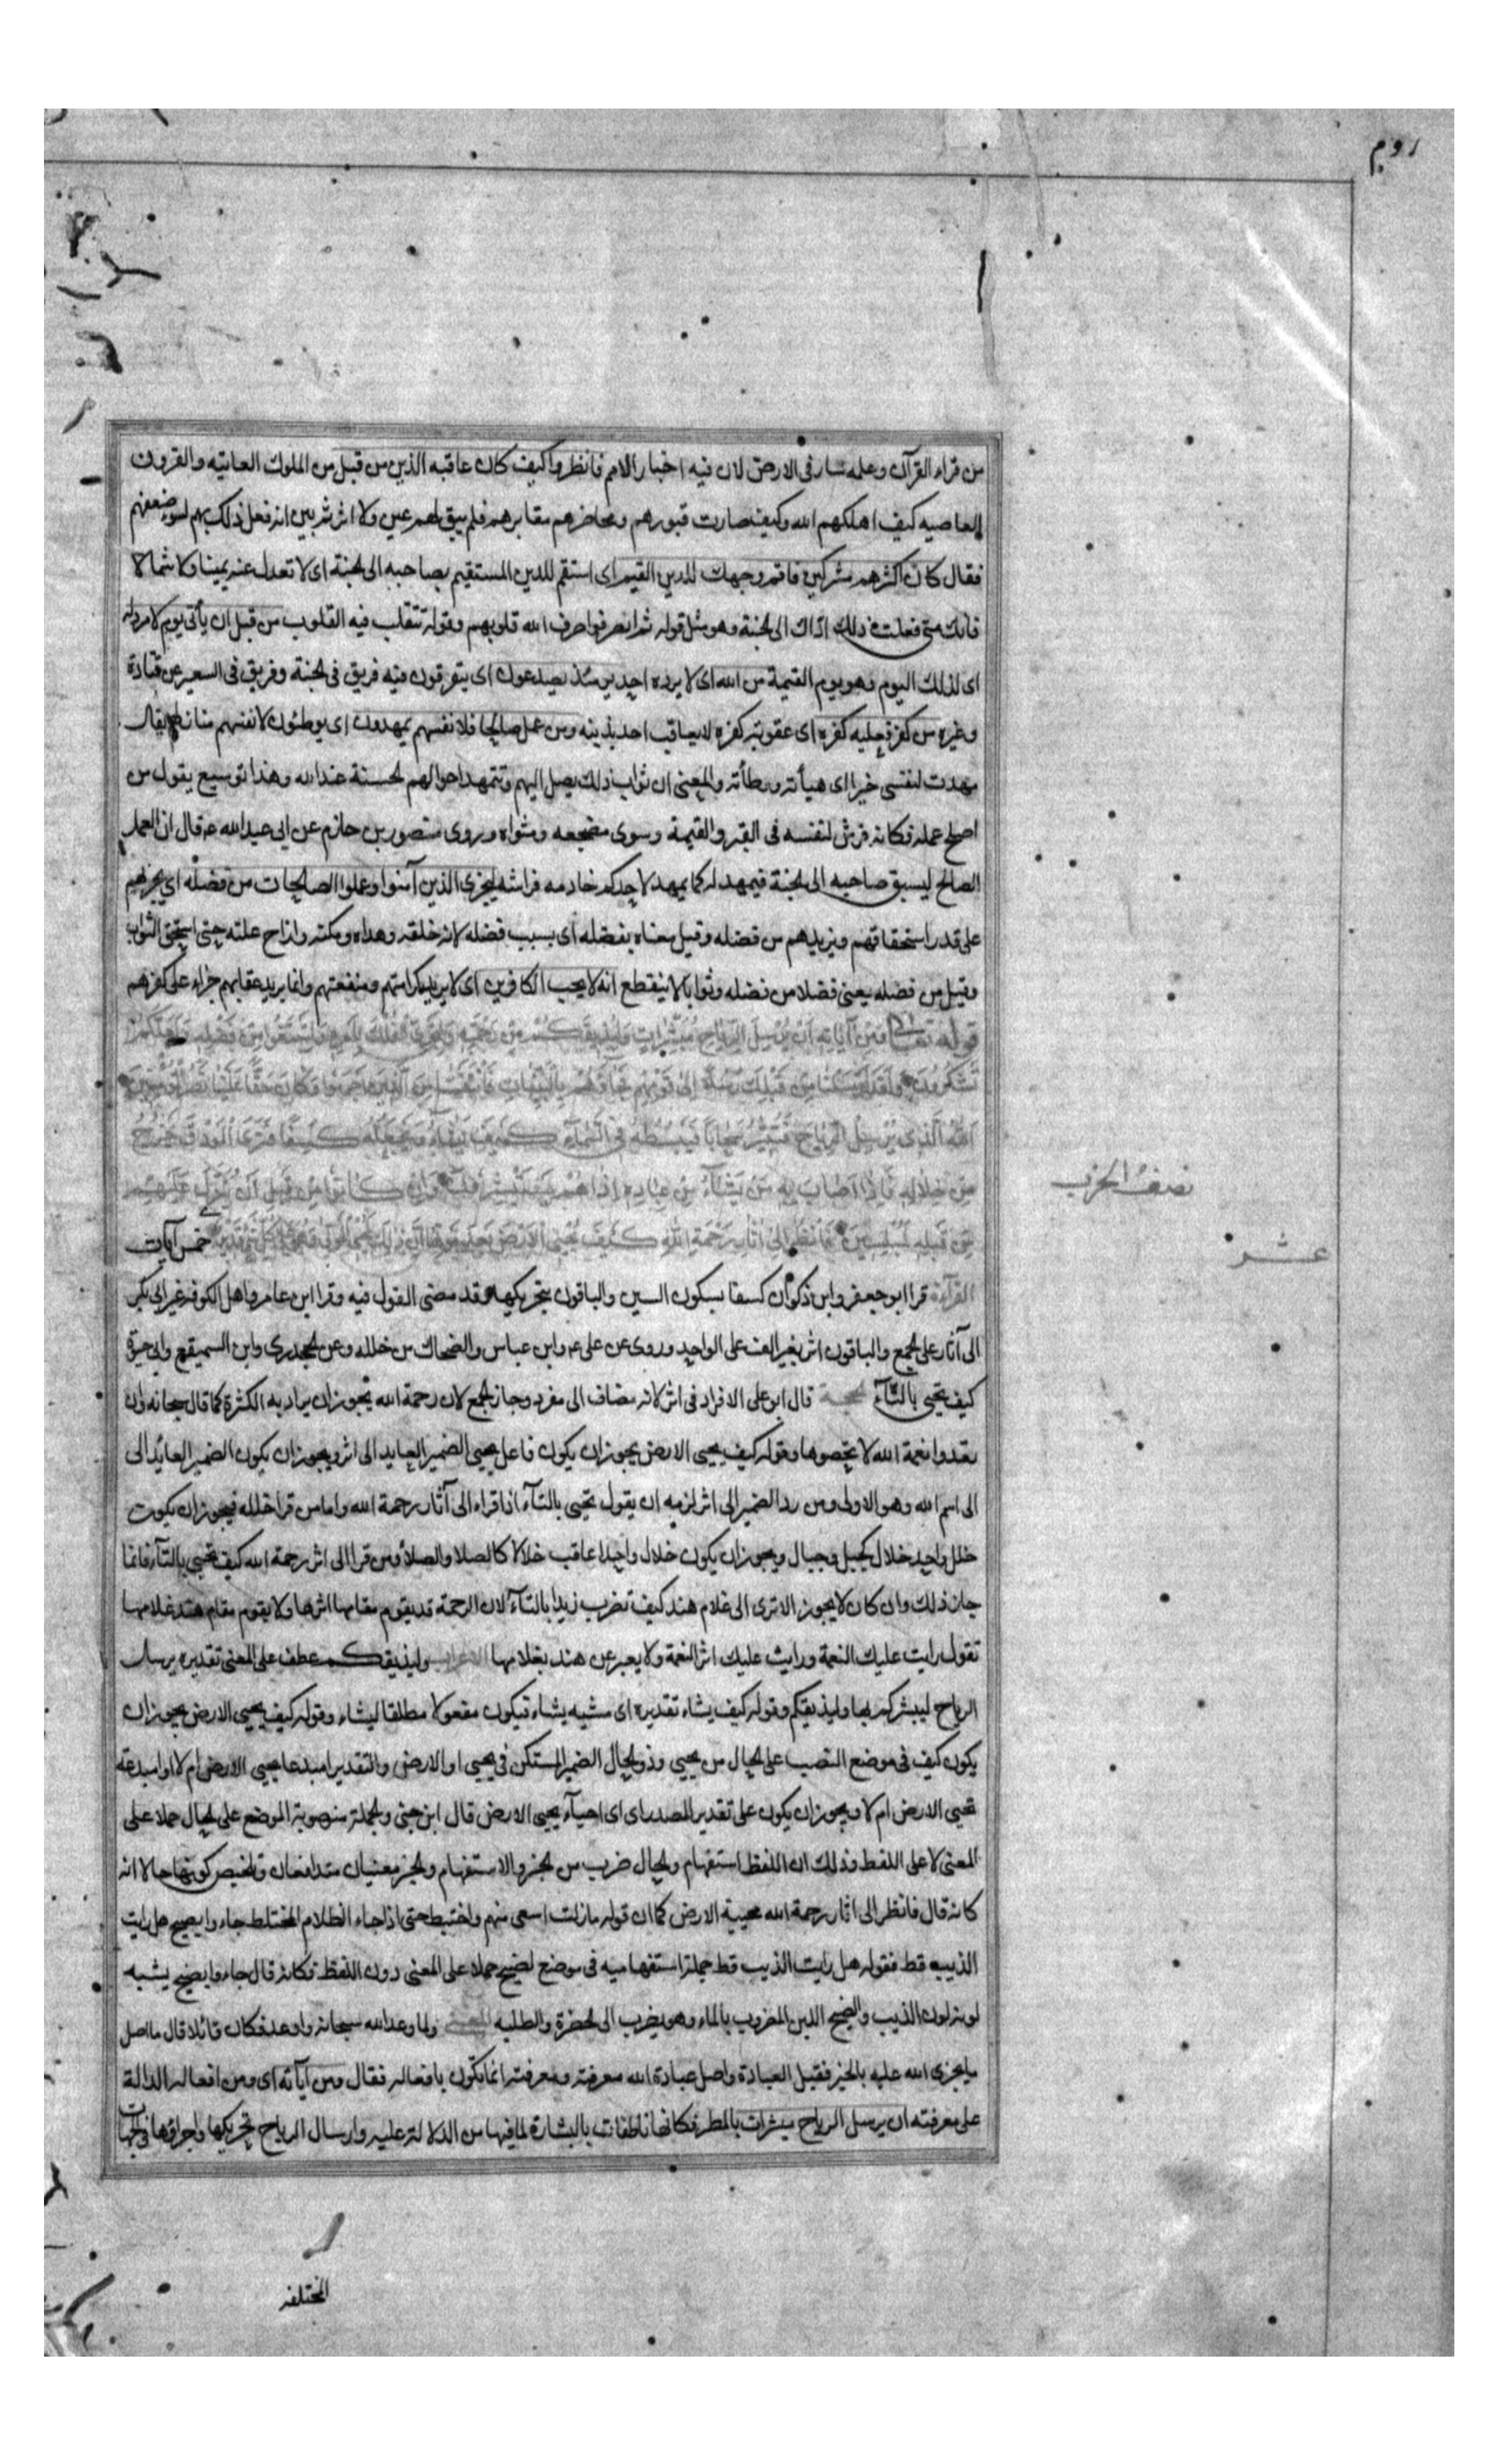 روم
من قراء القرآن وعلمه سار فى الارض لان فيه اخبار الامم فانظروا كيف كان عاقبه الذين من قبل من الملوك العاتيه والقرون
العاصيه كيف اهلكهم الله وكيف صارت قبورهم ومحاضرهم مقابرهم فلم يبق لهم عين ولا اثر ثم بين انه فعل ذلك بهم لسوء صنعهم
فقال كان اكثرهم مشركين فاقم وجهك للدين القيم اى استقم للدين المستقيم بصاحبه الى الجنة اى لا تعدل عنه يمينا ولا شمالا
فانك متى فعلت ذلك اداك الى الجنة وهو مثل قوله ثم انصرفوا صرف الله قلوبهم وقوله تتقلب فيه القلوب من قبل ان يأتى يوم لا مرد له
اى لذلك اليوم وهو يوم القيمة من الله اى لا يرده احد يومئذ يصدعون اى يتفرقون فيه فريق فى الجنة وفريق فى السعير عن قتادة
وغيره من كفر فعليه كفره اى عقوبة كفره لا يعاقب احد بذنبه ومن عمل صالحا فلانفسهم يمهدون اى يوطئون لانفسهم منازلهم يقال
مهدت لنفسى خيرا اى هيأته ووطأته والمعنى ان ثواب ذلك يصل اليهم وتتمهد احوالهم الحسنة عند الله وهذا توسيع يقول من
اصلح عمله فكانه فرش لنفسه فى القبر والقيمة وسوى مضجعه ومثواه وروى منصور بن حازم عن ابى عبد الله ع قال ان العمل
الصالح ليسبق صاحبه الى الجنة فيمهد له كما يمهد لاحدكم خادمه فراشه ليجزى الذين آمنوا وعملوا الصالحات من فضله اى يجزيهم
على قدر استحقاقهم ويزيدهم من فضله وقيل معناه بفضله اى بسبب فضله لانه خلقه وهداه ومكنه وازاح علته حتى استحق الثواب
وقيل من فضله يعنى فضلا من فضله وثوابا لا ينقطع انه لا يحب الكافرين اى لا يريد كرامتهم ومنفعتهم وانما يريد عقابهم جزاء على كفرهم
قوله تعالى ومن آياته ان يرسل الرياح مبشرات وليذيقكم من رحمته ولتجرى الفلك بامره ولتبتغوا من فضله ولعلكم
تشكرون ولقد ارسلنا من قبلك رسلا الى قومهم فجاؤهم بالبينات فانتقمنا من الذين اجرموا وكان حقا علينا نصر المؤمنين
الله الذى يرسل الرياح فتثير سحابا فيبسطه فى السماء كيف يشاء ويجعله كسفا فترى الودق يخرج
من خلاله فاذا اصاب به من يشاء من عباده اذا هم يستبشرون وان كانوا من قبل ان ينزل عليهم
نصف الحزب
من قبله لمبلسين فانظر الى اثار رحمة الله كيف يحيى الارض بعد موتها ان ذلك لمحيى الموتى وهو على كل شئ قدير خمس آيات
عشر
القرآءة قرا ابو جعفر وابن ذكوان كسفا بسكون السين والباقون بتحريكها وقد مضى القول فيه وقرا ابن عامر واهل الكوفة غير ابى بكر
الى آثار على الجمع والباقون اثر بغير الف على الواحد وروى عن على ع وابن عباس والضحاك من خلله وعن الجحدرى وابن السميقع وابى حيوة
كيف تحيى بالتآء الحجة قال ابو على الافراد فى اثر لانه مضاف الى مفرد وجاز الجمع لان رحمة الله يجوز ان يراد به الكثرة كما قال سبحانه وان
تعدوا نعمة الله لا تحصوها وقوله كيف يحيى الارض يجوز ان يكون فاعل يحيى الضمير العايد الى اثر ويجوز ان يكون الضمير العائد الى
الى اسم الله وهو الاولى ومن رد الضمير الى اثر لزمه ان يقول تحيى بالتآء اذا قراء الى آثار رحمة الله واما من قرا خلله فيجوز ان يكون
خلل واحد خلال كجبل وجبال ويجوز ان يكون خلال واحدا عاقب خلالا كالصلا والصلآء ومن قرا الى اثر رحمة الله كيف تحيى بالتآء فانما
جاز ذلك وان كان لا يجوز الا ترى الى غلام هند كيف تضرب زيدا بالتآء لان الرحمة قد يقوم مقامها اثرها ولا يقوم مقام هند غلامها
تقول رايت عليك النعمة ورايت عليك اثر النعمة ولا يعبر عن هند بغلامها الاعراب وليذيقكم عطف على المعنى تقديره يرسل
الرياح ليبشركم بها وليذيقكم وقوله كيف يشاء تقديره اى مشيه يشاء فيكون مفعولا مطلقا ليشاء وقوله كيف يحيى الارض يجوز ان
يكون كيف فى موضع النصب على الحال من يحيى وذو الحال الضمير المستكن فى يحيى او الارض والتقدير امبدعا يحيى الارض ام لا او امبدعة
تحيى الارض ام لا ويجوز ان يكون على تقدير المصدر اى اى احيآء يحيى الارض قال ابن جنى والجملة منصوبة الموضع على الحال حملا على
المعنى لا على اللفظ وذلك ان اللفظ استفهام والحال ضرب من الخبر والاستفهام والخبر معنيان متدافعان وتلخيص كونها حالا انه
كانه قال فانظر الى اثار رحمة الله محيية الارض كما ان قوله مازلت اسعى منهم واختبط حتى اذا جاء الظلام المختلط جاءوا بضيح هل رايت
الذيب قط فقوله هل رايت الذيب قط جملة استفهاميه فى موضع لضيح حملا على المعنى دون اللفظ فكانه قال جاءوا بضيح يشبه
لونه لون الذيب والضيح اللبن المضروب بالماء وهو يضرب الى الخضرة والطلسه المعنى ولما وعد الله سبحانه واوعد فكان قائلا قال ما اصل
ما يجزى الله عليه بالخير فقيل العبادة واصل عبادة الله معرفته ومعرفته انما تكون بافعاله فقال ومن آياته اى ومن افعاله الدالة
على معرفته ان يرسل الرياح مبشرات بالمطر فكانها ناطقات بالبشارة لما فيها من الدلالة عليه وارسال الرياح تحريكها واجراؤها فى الجهات
المختلفه